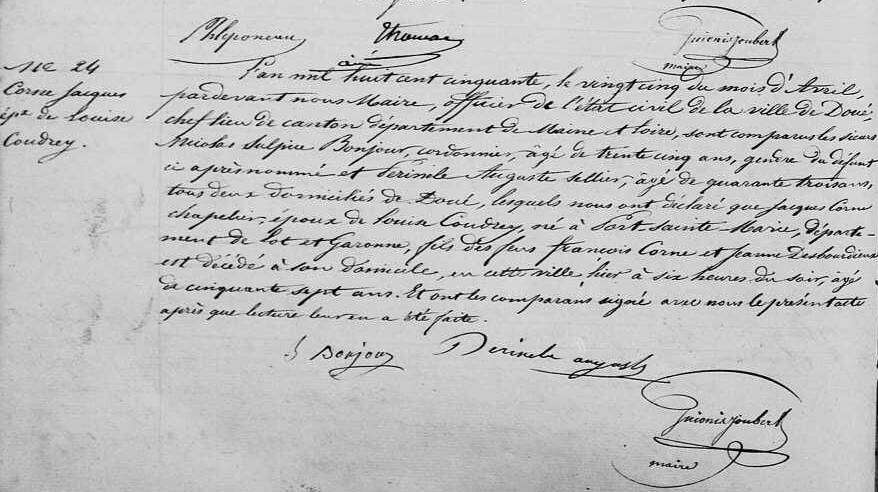 Phliponeau Thomas Guionis Joubert
ainé maire
Nº 24
Corne Jacques
épx de Louise
Coudrey.
L'an mil huit cent cinquante, le vingt cinq du mois d'Avril,
pardevant nous Maire, officier de l'état civil de la ville de Doué,
chef lieu de canton département de Maine et Loire, sont comparus les sieurs
Nicolas Sulpice Bonjour, cordonnier, âgé de trente cinq ans, gendre du défunt
ci après nommé et Auguste sellier, âgé de quarante trois ans,
tous deux domiciliés de Doué, lesquels nous ont déclaré que Jacques Corne
chapelier, époux de Louise Coudrey, né à Port Sainte-Marie, départe-
ment de Lot et Garonne, fils des feus François Corne et Jeanne Desbourdieux
est décédé à son domicile, en cette ville, hier à six heures du soir, âgé
de cinquante sept ans. Et ont les comparans signé avec nous le présent acte
après que lecture leur en a été faite.
S Bonjour auguste
Guionis Joubert
maire